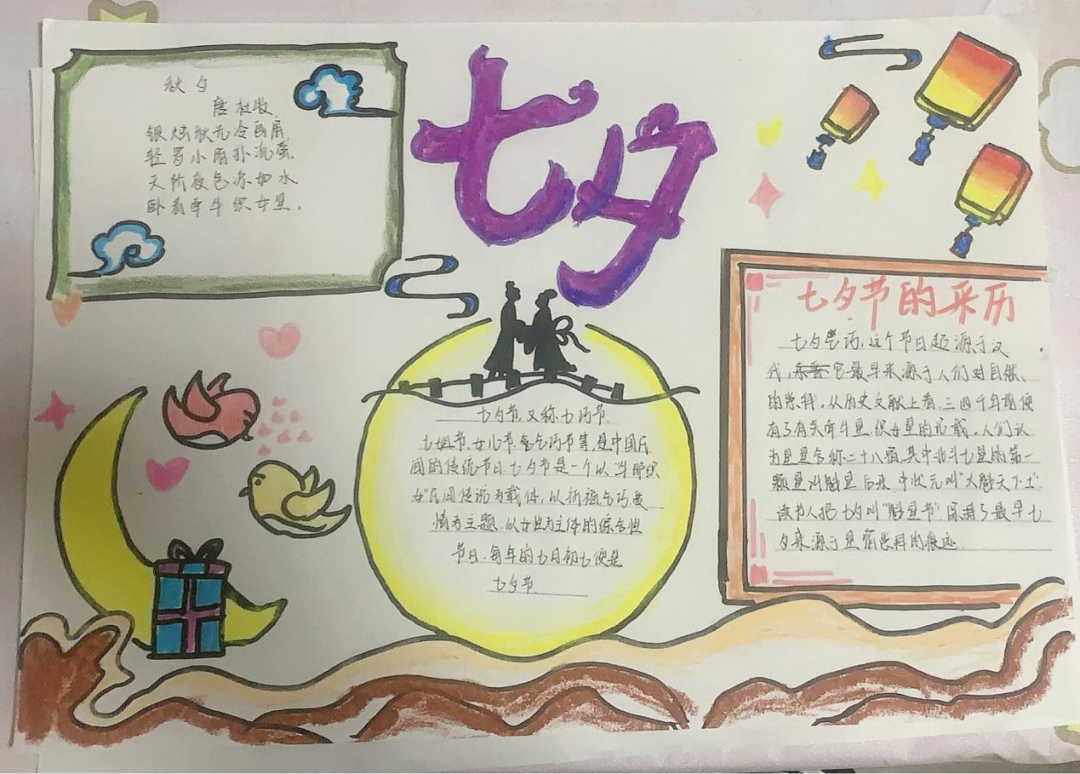 七夕
秋夕
唐 杜牧
银烛秋光冷画屏
轻罗小扇扑流萤
天阶夜色凉如水
卧看牵牛织女星。
七夕节,又称七巧节、
七姐节、女儿节、乞巧节等,是中国民
间的传统节日,七夕节是一个以"牛郎织
女"民间传说为载体,以祈福乞巧爱
情为主题,以女性为主体的综合性
节日,每年的七月初七便是
七夕节.
七夕节的来历
七夕 这个节日起源于汉
代,它最早来源于人们对自然、
的崇拜。从历史文献上看,三四千年前便
有了有关牵牛星织女星的记载。人们认
为星星合称二十八宿,其中北斗七星的第一
颗星叫魁星后来,中状元叫"大魁天下士"
读书人把七夕叫"魁星节" 了最早七
夕来源于星宿崇拜的痕迹